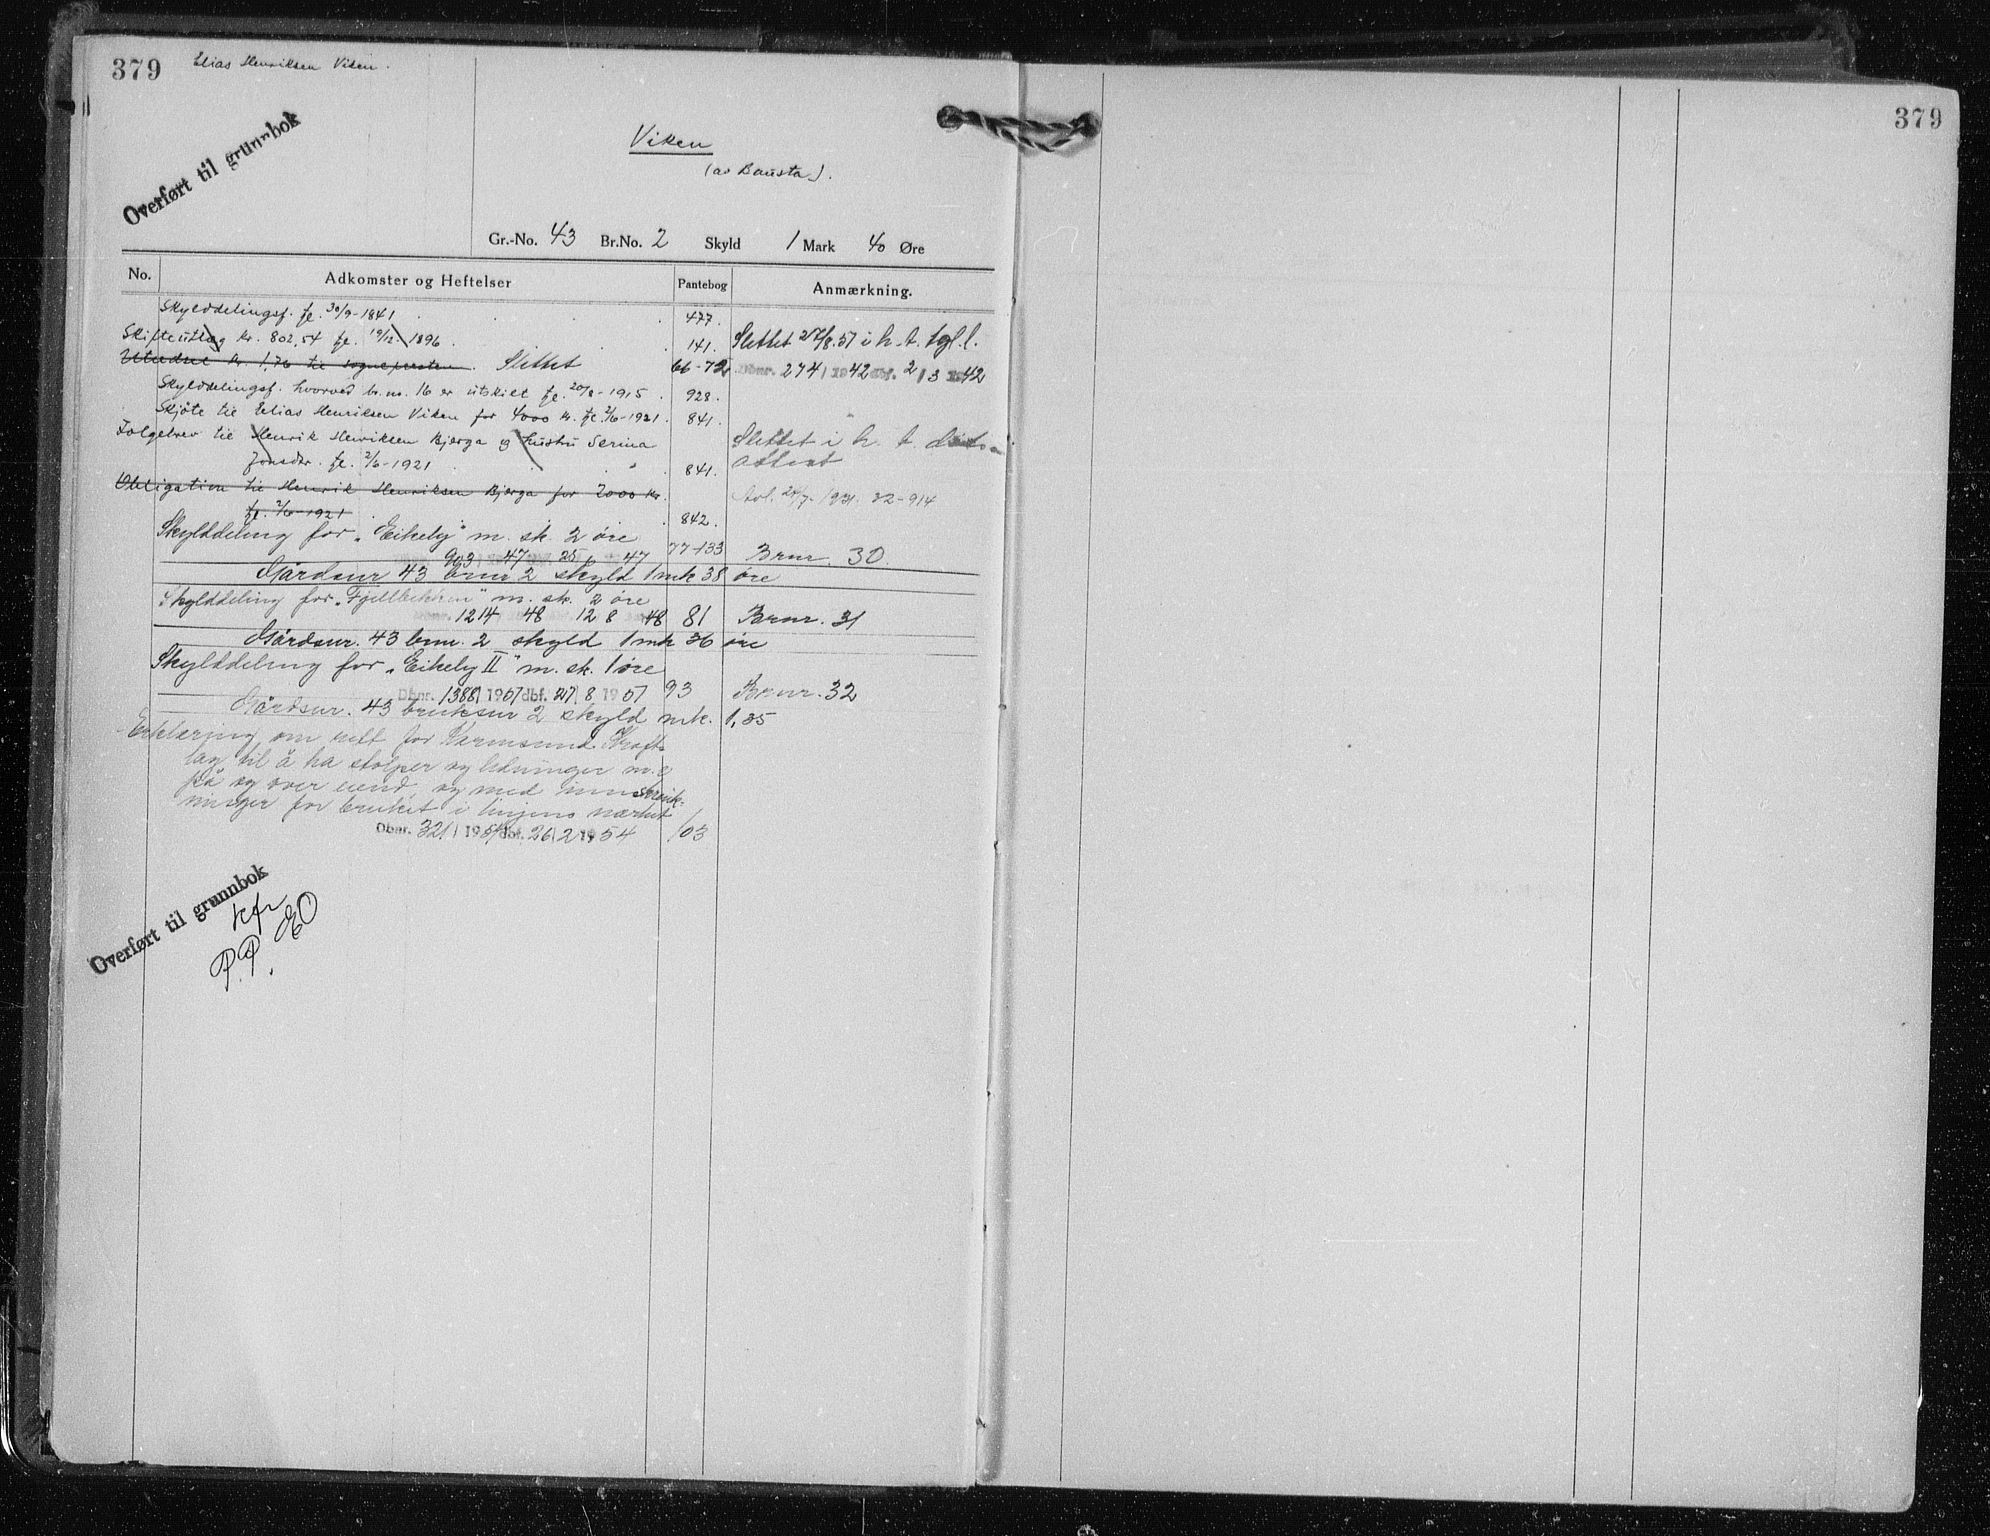 379
Elias Henriksen Viken.
379
Overført til grunnbok
Viken
(av Bausta).
Gr.-No. 43 Br.No. 2 Skyld 1 Mark 40 Øre
No. Adkomster og Heftelser Pantebog Anmærkning.
Skylddelingsf. fl. 30/9-1841 . . . 477.
Skifteutlæg kr. 802,54 fl. 19/12 1896 . . 141. Slettet i h. t. tgl.l.
kr. 1,76 til sognepresten. Slettet 66-72 Dbnr. 274/1942 dbf. 2/3 1942
Skylddelingsf. hvorved br.nr. 16 er utskilt fl. 20/8-1915. 928.
Skjøte til Elias Henriksen Viken for 4000 kr. fl. 2/6-1921. 841.
Folgebrev til Henrik Henriksen Bjerga og hustru Serina Slettet i h. t.
Jonsdtr. fl. 2/6-1921 . . . 841. attest
Obligation til Henrik Henriksen Bjerga for 2000 kr. Avl. 24/7-1931. 22-914
fl. 2/6-1921 . . 842.
Skylddeling for "Eikeby" m. sk. 2 øre 77-133 Brnr. 30.
903 47 25 47
Gårdsnr 43 brnr 2 skyld 1 mk 38 øre
Skylddeling for "Fjellbekken" m. sk. 2 øre
1214 48 12 8 48 81 Brnr. 31
Gårdsnr. 43 brnr. 2 skyld 1 mk 36 øre
Skylddeling for "Eikeby II" m. sk. 1 øre
Dbnr. 1388/1951 dbf. 27/8 1951 93 Brnr. 32
Gårdsnr. 43 bruksnr 2 skyld mk. 1,35
Erklæring om rett for Karmsund Kraft-
lag til å ha stolper og ledninger m.v.
på og over eiend. og med innskrenk-
ninger for bruket i linjens nærhet
Dbnr. 321/1954 dbf. 26/2 1954 103
Overført til grunnbok